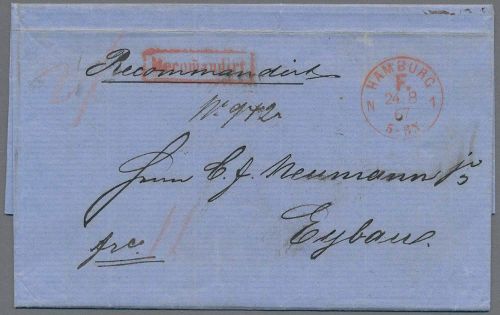 Recommandirt
Recommandirt
HAMBURG
F.
24 8
N 1
67
5-6N
No 942
Herrn C. F. Neumann jr
frco.
Eybau.